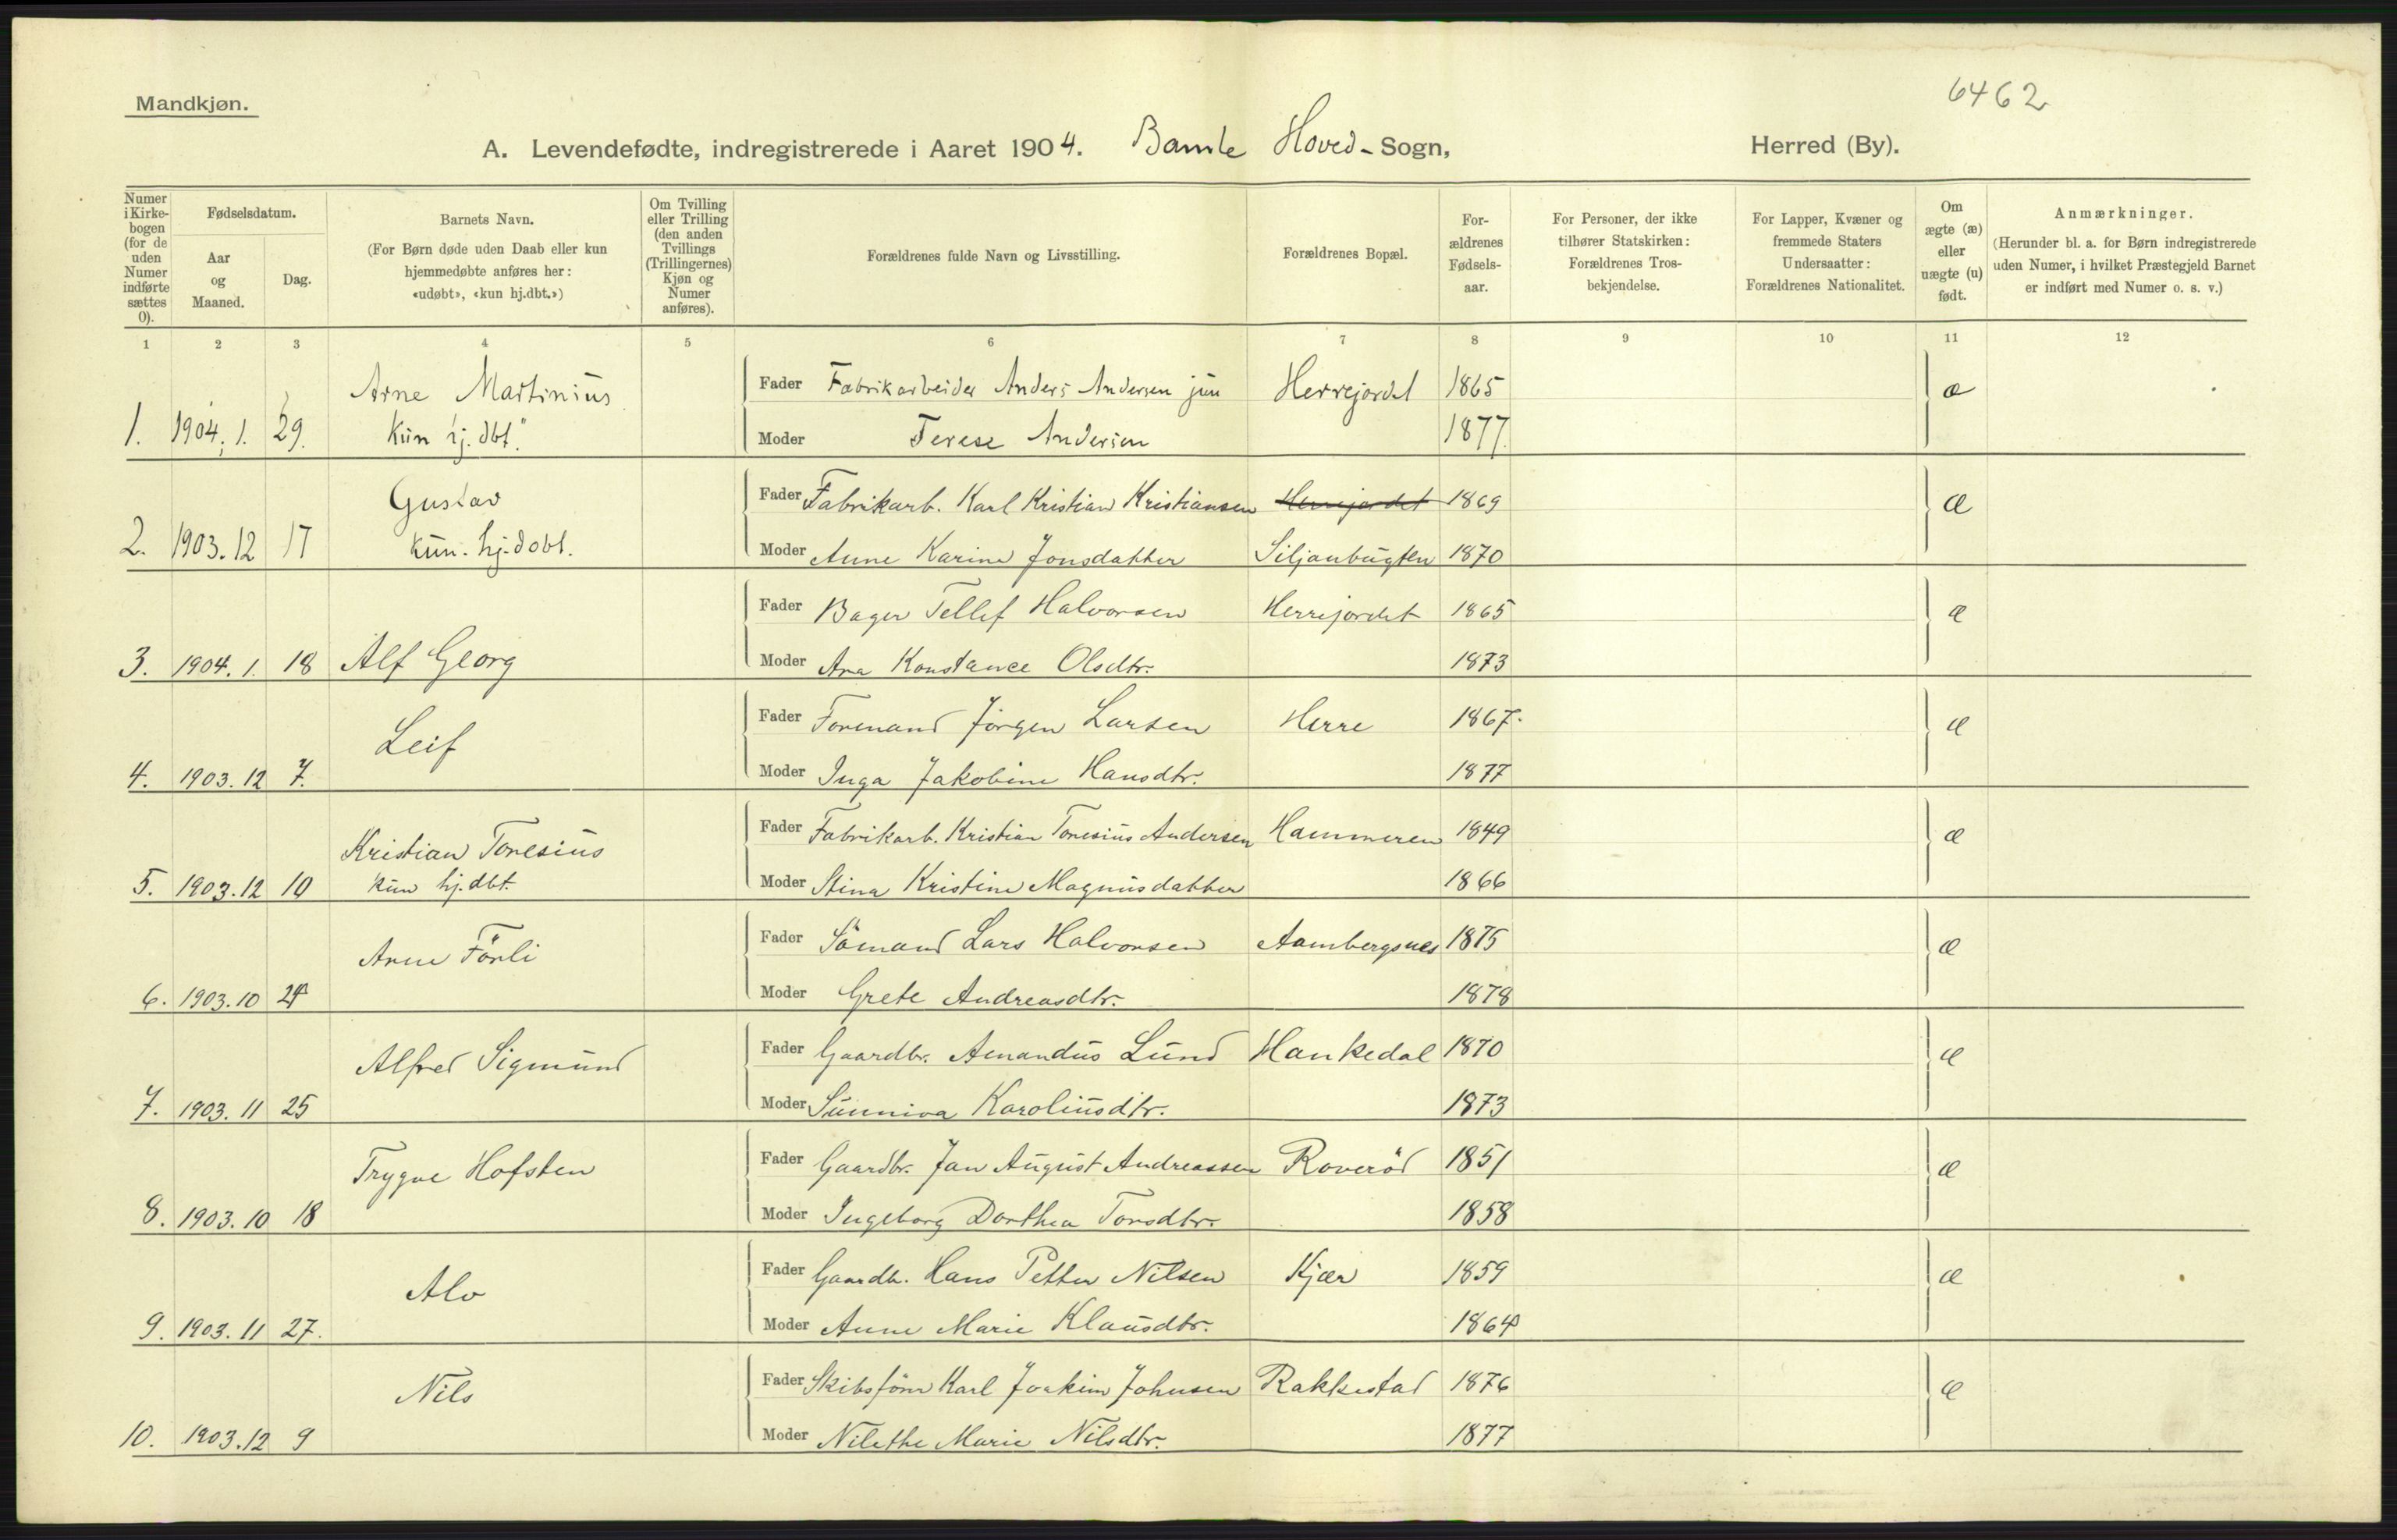 6462
Mandkjøn.
A. Levendefødte, indregistrerede i Aaret 1904. Bamle Hoved-Sogn, Herred (By).
Numer i Kirkebogen (for de uden Numer indførte sættes 0).
Fødselsdatum.
Aar og Maaned.
Dag.
Barnets Navn.
(For Børn døde uden Daab eller kun hjemmedøbte anføres her: «udøbt», «kun hj.dbt.»)
Om Tvilling eller Trilling (den anden Tvillings (Trillingernes) Kjøn og Numer anføres).
Forældrenes fulde Navn og Livsstilling.
Forældrenes Bopæl.
Forældrenes Fødselsaar.
For Personer, der ikke tilhører Statskirken: Forældrenes Trosbekjendelse.
For Lapper, Kvæner og fremmede Staters Undersaatter: Forældrenes Nationalitet.
Om ægte (æ) eller uægte (u) født.
Anmærkninger.
(Herunder bl. a. for Børn indregistrerede uden Numer, i hvilket Præstegjeld Barnet er indført med Numer o. s. v.)
1 2 3 4 5 6 7 8 9 10 11 12
Arne Martinius Fader Fabrikarbeider Anders Andersen jun Herrejordet 1865 æ
1. 1904. 1. 29. kun hj. dbt." Moder Terese Andersen 1877.
Gustav Fader Fabrikarb. Karl Kristian Kristiansen Herrejordet 1869 æ
2. 1903.12 17 kun. hj.dobt. Moder Anne Karine Jonsdatter Siljanbugten 1870
Fader Bager Tellef Halvorsen Herrejordet 1865 æ
3. 1904. 1. 18 Alf Georg Moder Ana Konstance Olsdtr. 1873
Leif Fader Formand Jörgen Larsen Herre 1867. æ
4. 1903.12 7. Moder Inga Jakobine Hansdtr. 1877
Kristian Tonesius Fader Fabrikarb. Kristian Tonesius Andersen Hammeren 1849 æ
5. 1903.12 10 kun hj.dbt. Moder Stina Kristine Magnusdatter 1866
Arne Förli Fader Sömand Lars Halvorsen Aambergsnes 1875 æ
6. 1903.10 24 Moder Grete Andreasdtr. 1878
Alfred Sigmund Fader Gaardbr. Amandus Lund Hankedal 1870 æ
7. 1903. 11 25 Moder Sunniva Karoliusdtr. 1873
Trygve Hofsten Fader Gaardbr. Jan August Andreassen Roveröd 1851 æ
8. 1903.10 18 Moder Ingeborg Dorthea Torsdtr. 1858
Alv Fader Gaardb. Hans Petter Nilsen Kjær 1859 æ
9. 1903. 11 27. Moder Anne Marie Klausdtr. 1864
Nils Fader Skibstöm Karl Joakim Johnsen Rakkestad 1876 æ
10. 1903.12 9 Moder Nilethe Marie Nilsdtr. 1877